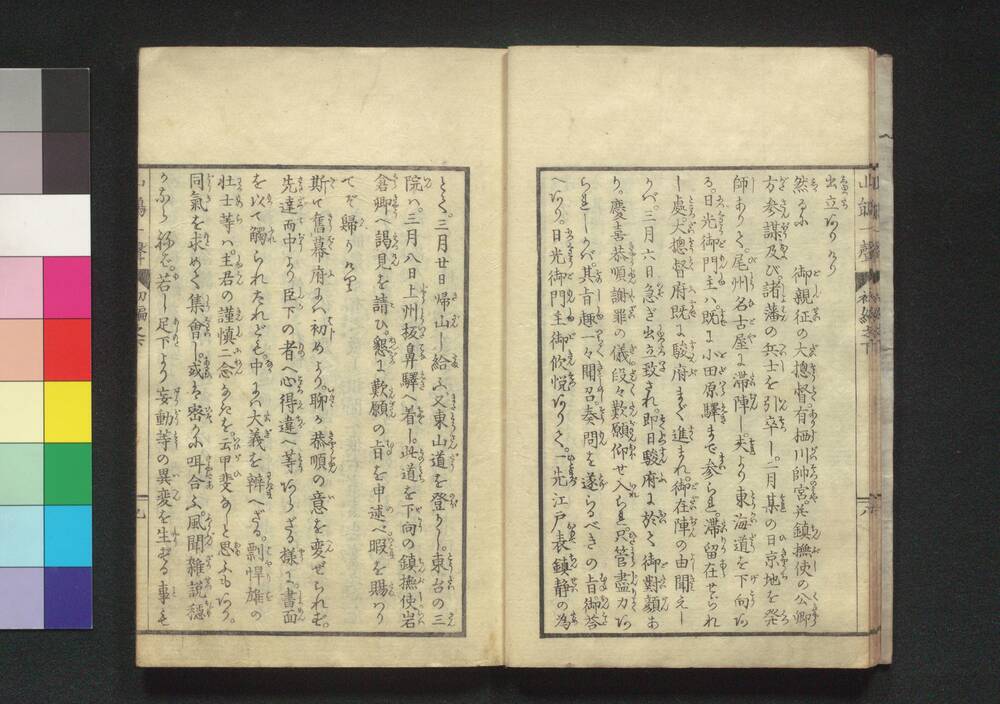 出立ありけり
然るに　御親征の大總督有栖川帥宮其鎮撫使の公卿
方参謀及び諸藩の兵士を引卒し二月某の日京地を発
師ありて尾州名古屋に滞陣し夫より東海道を下向あ
る日光御門主ハ既に小田原驛まで参られ滞留在せられ
し處大總督府既に駿府まで進まれ御在陣の由聞えし
かバ三月六日急ぎ出立致され即日駿府に於て御對顔あ
り慶喜恭順謝罪の儀段々歎願仰せ入られ只管盡力あ
られしかバ其旨趣一々聞召奏問を遂らるべきの旨御答
へあり日光御門主御欣悦ありて一先江戸表鎮静の為
とて三月廿日帰山し給ふ又東山道を登りし東台の三
院ハ三月八日上州板鼻驛へ着し此道を下向の鎮撫使岩
倉卿へ謁見を請ひ懇に歎願の旨を申述べ暇を賜りり
てぞ歸りける
斯て舊幕府にハ初めより聊か恭順の意を変ぜられず
先達而中より臣下の者へ心得違へ等あらざる様に書面
を以て觸られたれども中にハ大義を辨へざる剽悍雄の
壮士等ハ主君の謹慎二念なきを云甲斐なしと思ふもあり
同氣を求めて集會し或は密かに咡合ふ風聞雑説穏
かならねバ若し足下より妄動等の異変を生ぜる事も
山嶋一聲
初編之六